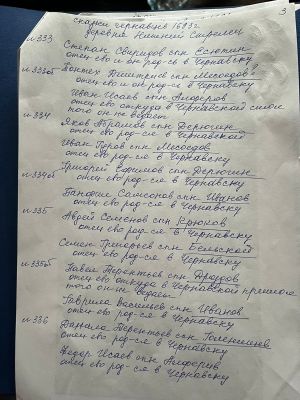 3
сказки чернавцев 1693г.
деревня Нижний Стрелец
л.333 Степан Свиридов спн Есюнин
отец его и он род-сь в Чернавску
л.333об Донких Дмитриев спн Месоедов?
отец его и он род-сь в Чернавску
Иван Исаев спн Алферов
отец его откуда в Чернавской
того он не ведает
л.334 Яков Абрамов спн Дерюгин
отец его род-ся в Чернавской
Иван Петров спн Месоедов
отец его род-ся в Чернавску
л.334об Григорий Ефимов спн Дерюгин
отец его род-ся в Чернавску
Панфил Самсонов спн Иванов
отец его род-ся в Чернавску
л.335 Авдей Семенов спн Крюков
отец его род-ся в Чернавску
Семен Григорьев спн Бельский
отец его род-ся в Чернавску
л.335об Павел Терентьев спн Дроздов
отец его откуда в Чернавской пришол
того он не ведает
Гаврила Васильев спн Иванов
отец его род-ся в Чернавску
л.336 Данила Терентьев спн
отец его род-ся в Чернавску
Федор Исаев спн Алферов
отец его род-ся в Чернавску